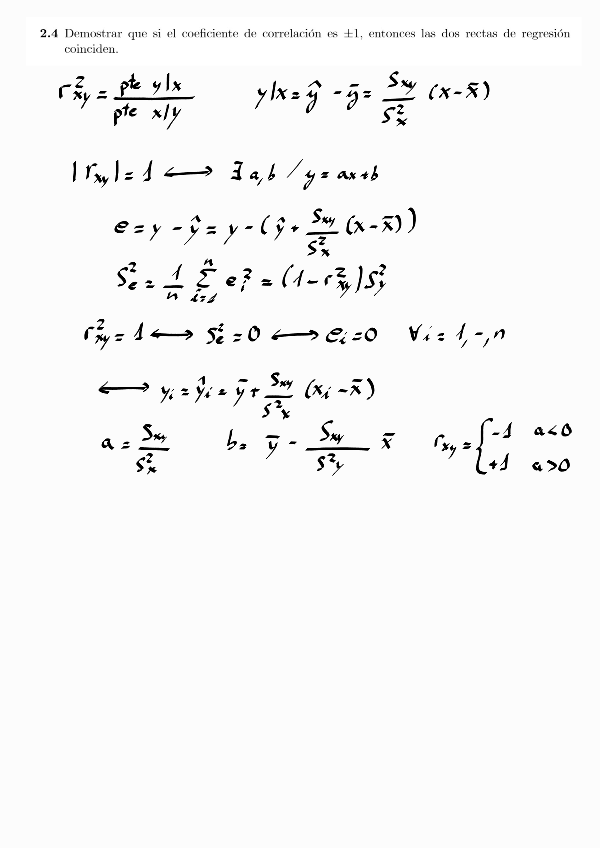 2.4 Demostrar que si el coeficiente de correlación es ±1, entonces las dos rectas de regresión
coinciden.
r²xy = pte y|x / pte x/y    y|x = ŷ - ȳ = Sxy / S²x (x - x̄)
|rxy| = 1 ⟷ ∃ a,b / y = ax+b
e = y - ŷ = y - (ŷ + Sxy / S²x (x - x̄))
S²e = 1/n Σ(i=1, n) e²i = (1 - r²xy) S²y
r²xy = 1 ⟷ S²e = 0 ⟷ ei = 0  ∀i = 1,-,n
⟷ yi = ŷi = ȳ + Sxy / S²x (xi - x̄)
a = Sxy / S²x    b = ȳ - Sxy / S²y x̄    rxy = { -1 a<0
+1 a>0